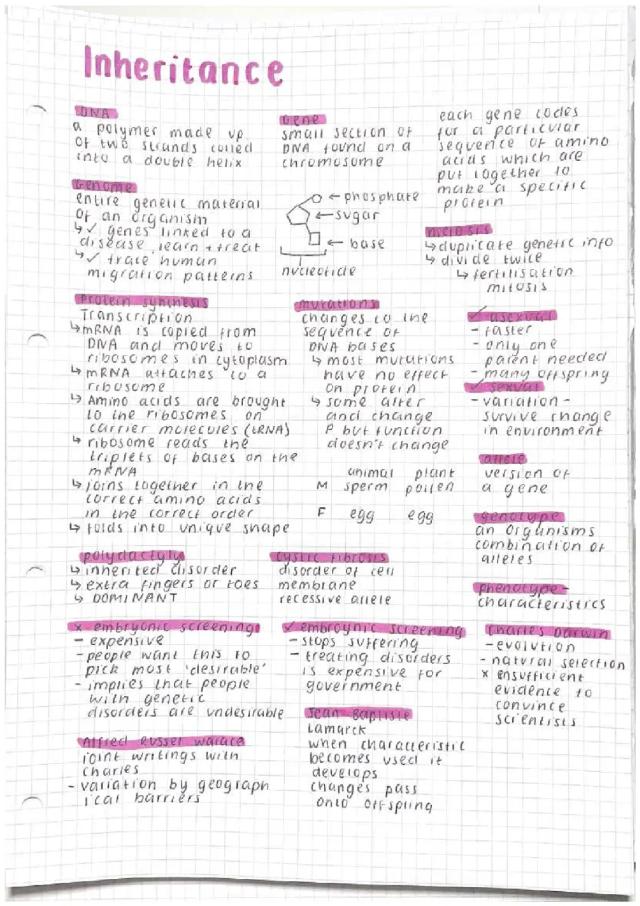 Inheritance
DNA
a polymer made up
of two strands coiled
into a double helix
Gene
small section of
DNA found on a
chromosome
each gene codes
for a particular
sequence of amino
acids which are
put together to
make a specific
protein
Genome
entire genetic material
of an organism
↳ ✓ genes linked to a
disease, learn + treat
↳ ✓ trace human
migration patterns
← phosphate
← sugar
← base
nucleotide
meiosis
↳ duplicate genetic info
↳ divide twice
↳ fertilisation
mitosis
Protein synthesis
Transcription
↳ mRNA is copied from
DNA and moves to
ribosomes in cytoplasm
↳ mRNA attaches to a
ribosome
↳ Amino acids are brought
to the ribosomes on
carrier molecules (tRNA)
↳ ribosome reads the
triplets of bases on the
mRNA
↳ joins together in the
correct amino acids
in the correct order
↳ folds into unique shape
mutations
changes to the
sequence of
DNA bases
↳ most mutations
have no effect
on protein
↳ some alter
and change
P but function
doesn't change
animal plant
M sperm pollen
F egg egg
✓ asexual
- faster
- only one
parent needed
- many offspring
✓ sexual
- variation -
survive change
in environment
allele
version of
a gene
genotype
an organisms
combination of
alleles
phenotype -
characteristics
polydactyly
↳ inherited disorder
↳ extra fingers or toes
↳ DOMINANT
cystic fibrosis
disorder of cell
membrane
recessive allele
x embryonic screening
- expensive
- people want this to
pick most 'desirable'
- implies that people
with genetic
disorders are undesirable
✓ embroynic screening
- stops suffering
- treating disorders
is expensive for
government
Charles Darwin
- evolution
- natural selection
x ensufficient
evidence to
convince
scientists
Alfred Russel Walace
joint writings with
Charles
- variation by geograph
ical barriers
Jean-Baptiste
Lamarck
when characteristic
becomes used it
develops
changes pass
onto offspring